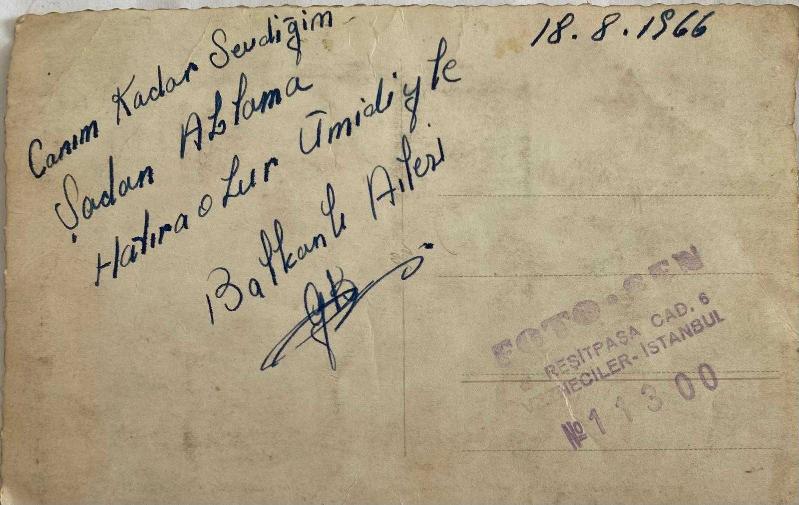 18.8.1966
Canım Kadar Sevdiğim
Şadan Ablama
Hatıra olur Ümidiyle
Balkanlı Ailesi
FOTO-ŞEN
REŞİTPAŞA CAD. 6
VEZNECİLER-İSTANBUL
№ 11300